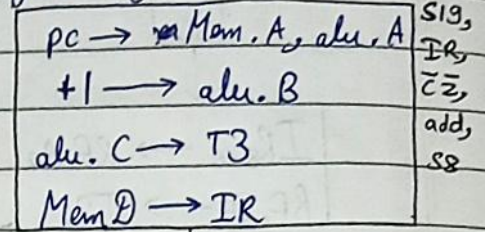 pc → Mem.A, alu.A
+1 → alu.B
alu.C → T3
Mem D → IR
S19,
IR,
c̄ z̄,
add,
S8